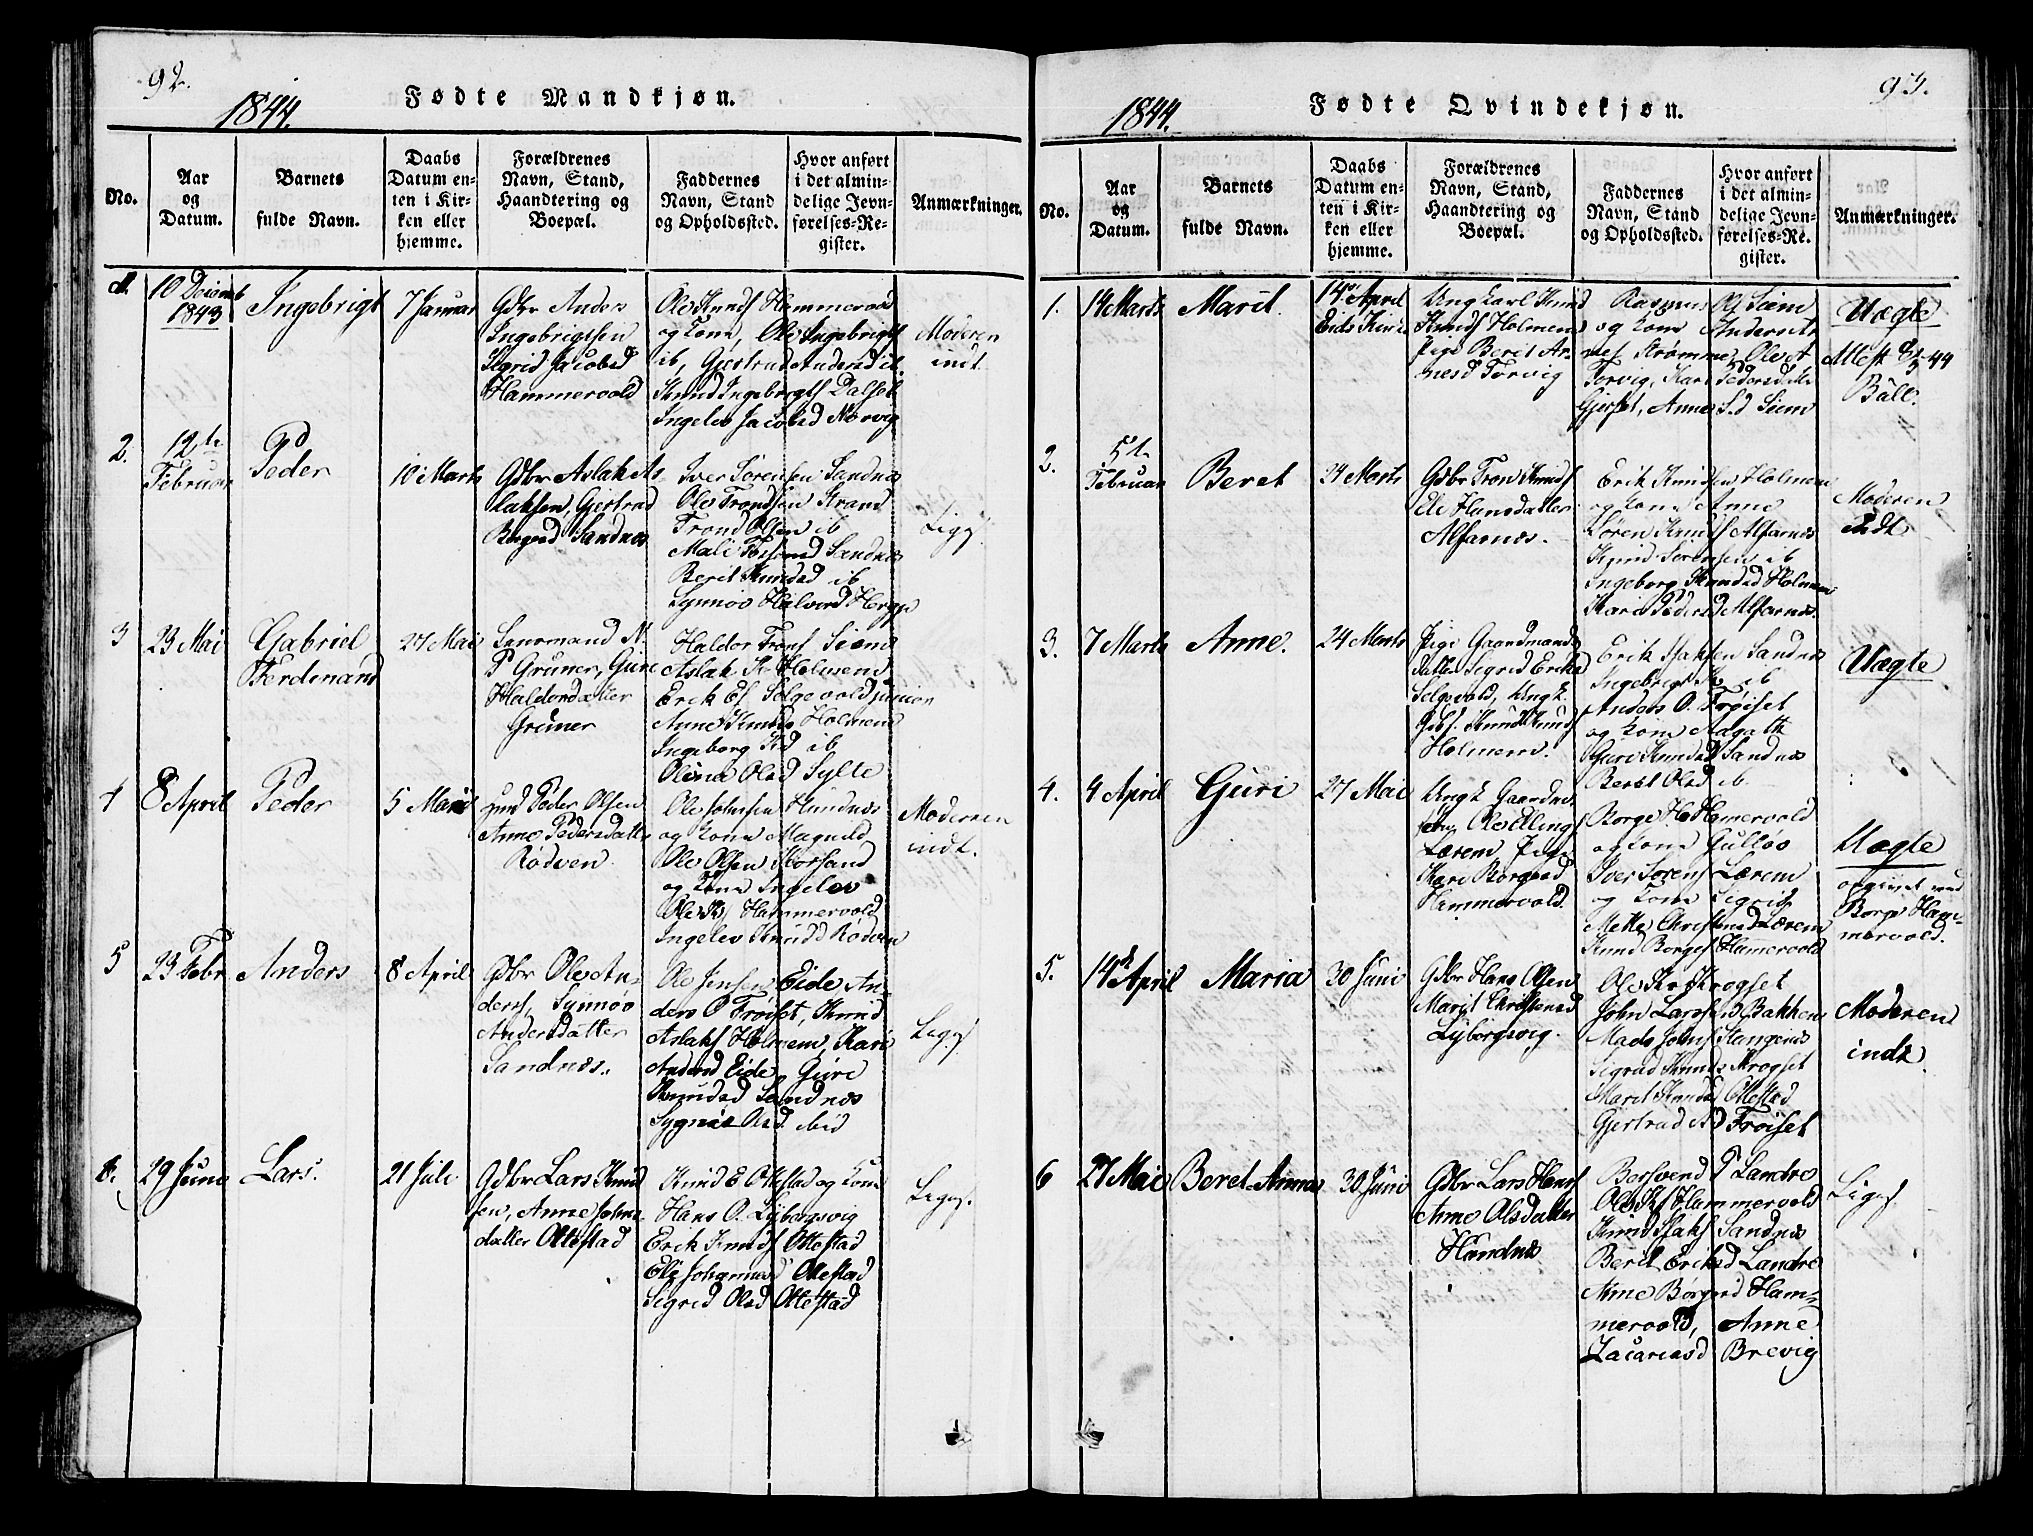 92.
1844.
Fødte Mandkjøn.
No.
Aar
og
Datum.
Barnets
fulde Navn.
Daabs
Datum en-
ten i Kir-
ken eller
hjemme.
Forældrenes
Navn, Stand,
Haandtering og
Boepæl.
Faddernes
Navn, Stand
og Opholdssted.
Hvor anført
i det almin-
delige Jevn-
førelses-Re-
gister.
Anmærkninger.
1.
10 Decemb
1843
Ingebrigt
7 Januar
Gdbr Anders
Ingebrigtsen
Sigrid Jacobsd
Hammervold
Ole Knuds Hammervold
og Kone, Ole Ingebrigts
ib, Gjertrud Andersd ib.
Knud Ingebrigts Dalset
Ingelev Jacobsd Norvig
Moderen
indt.
2.
12te
Februar
Peder
10 Marts
Gdbr Aslak As-
laksen, Gjertrud
Sandnæs
Iver Sørensen Sandnæs
Ole Trondsen Strand
Trond Olsen ib
Mali Sandnæs
Berit Knudsd ib
Synnøv Halvord Herje
Ligs.
3
23 Mai
Gabriel
Ferdinand
27 Mai
Lensmand N.
P Grüner, Guri
Haldorsdatter
Grüner
Haldor Trons Siem
Aslak K Holmem
Erik Es Selgevold junior
Anne Knudsd Holmem
Ingeborg Kd ib
Olina Olsd Sylte
4
8 April
Peder
5 Mai
Peder Olsen
Anne Pedersdatter
Rødven
Ole Johnsen Hundnæs
og Kone Magnild
Ole Olsen Horsand
og Kone Ingelev
Ole Ks Hammervold
Ingelev Knudsd Rødven
Moderen
indt.
5
23 Febr
Anders
8 April
Gdbr Ole An-
ders, Synnøv
Andersdatter
Sandnæs.
Ole Jensen Eide, An-
ders O Trøiset, Knud
Aslaks Holmem, Kari
Andersd Eide, Guri
Knudsd Sandnæs
Olsd ibid
Ligs.
6.
29 Juni
Lars.
21 Juli
Gdbr Lars Knud
sen, Anne Johns-
datter Ottestad
Knud E Ottestad og Kone
Hans O. Lyborgsvig
Erik Knuds Ottestad
Eli Johannesd Ottestad
Sigrid Olsd Ottestad
Ligs.
93.
1844.
Fødte Qvindekjøn.
No.
Aar
og
Datum.
Barnets
fulde Navn.
Daabs
Datum en-
ten i Kir-
ken eller
hjemme.
Forældrenes
Navn, Stand,
Haandtering og
Boepæl.
Faddernes
Navn, Stand
og Opholdssted.
Hvor anført
i det almin-
delige Jevn-
førelses-Re-
gister.
Anmærkninger.
1.
14 Marts
Marit.
14 April
Eids Kirke
Ungkarl Knud
Knuds Holmem
Pige Berit Ar-
nesd Torvig
Rasmus Siem
og Kone
Strømme, Ole A
Torvig, Kari Pedersdatter
Gjerset, Anne Siem
Uægte
Attest
Bull.
2.
5te
Februar
Beret
24 Marts
Gdbr Tron Knuds
Eli Hansdatter
Alfarnæs.
Erik Knudsen Holmem
og Kone Anne
Søren Knuds Alfarnæs
Knud Sørensen ib
Ingeborg Knudsd Holmem
Kari Pedersd Alfarnæs.
Moderen
indt
3.
7 Marts
Anne.
24 Marts
Pige Gaardmands
datter Sigrid Eriksd
Selgevold, Ungk.
Gdbs. Knud Knuds
Holmem.
Erik Isaksen Sandnæs
Ingebrigt ib
Anders O. Trøiset
og Kone Aagath
Guri Knudsd Sandnæs
Beret Olsd ib.
Uægte
4.
4 April
Guri
27 Mai
Ungk. Gaardm.
søn Ole Ellings
Lærem Pige
Kari Borgesd
Hammervold.
Borge H Hamervold
og Kone Gulløv
Iver Sørens Lærem
og Kone Sigrid
Mette Christensd Lærem
Knud Borges Hamervold
Uægte
opgivet ved
Borge Ham-
mervold.
5.
14de April
Maria
30 Juni
Gdbr Hans Olsen
Marit Christensd
Lyborgsvig.
Ole Krogset
John Larsen Bakken
Mads Johns Stangenæs
Sigrid Knudsd Krogset
Marit Knudsd Ottestad
Gjertrud Ad Trøiset
Moderen
indt.
6
27 Mai
Beret Anna
30 Juni
Gdbr Lars Hans
Anne Olsdatter
Hundnæs
Bersvend P Landre
Ole Ks Hammervold
Knud Isaks Sandnæs
Berit Eriksd Landre
Anne Borgesd Ham-
mervold, Anne
Zacariasd Brevig
Ligs